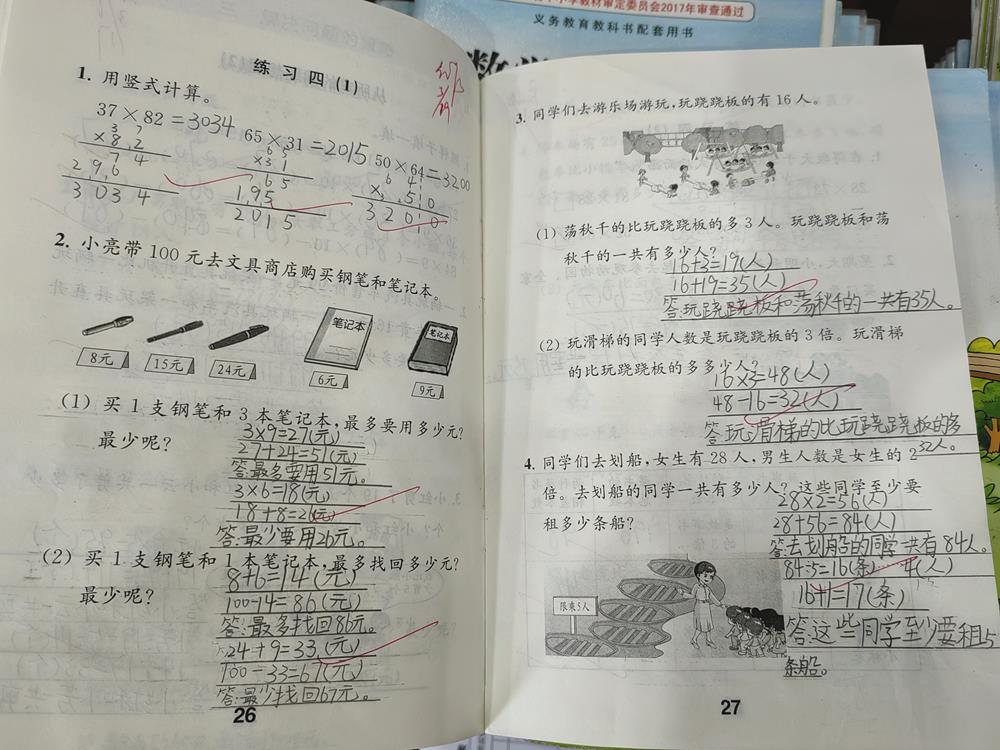 中小学教材审定委员会2017年审查通过
义务教育教科书配套用书
练习四(1)
1. 用竖式计算。
37×82=3034
65×31=2015
50×64=3200
2. 小亮带100元去文具商店购买钢笔和笔记本。
笔记本
笔记本
8元
15元
24元
6元
9元
(1) 买1支钢笔和3本笔记本,最多要用多少元?
最少呢?
3×9=27(元)
27+24=51(元)
答:最多要用51元。
3×6=18(元)
18+8=2(元)
答:最少要用26元。
(2) 买1支钢笔和1本笔记本,最多找回多少元?
最少呢?
8+6=14(元)
100-14=86(元)
答:最多找回86元。
24+9=33(元)
100-33=67(元)
答:最少找回67元。
26
3. 同学们去游乐场游玩,玩跷跷板的有16人。
(1) 荡秋千的比玩跷跷板的多3人。玩跷跷板和荡
秋千的一共有多少人?
16+3=19(人)
16+19=35(人)
答:玩跷跷板和荡秋千的一共有35人。
(2) 玩滑梯的同学人数是玩跷跷板的3倍。玩滑梯
的比玩跷跷板的多多少人?
16×3=48(人)
48-16=32(人)
答:玩滑梯的比玩跷跷板的多
32人。
4. 同学们去划船,女生有28人,男生人数是女生的2
倍。去划船的同学一共有多少人?这些同学至少要
租多少条船?
28×2=56(人)
28+56=84(人)
答:去划船的同学一共有84人。
84÷5=16(条)……4(人)
16+1=17(条)
答:这些同学至少要租
条船。
限乘5人
27